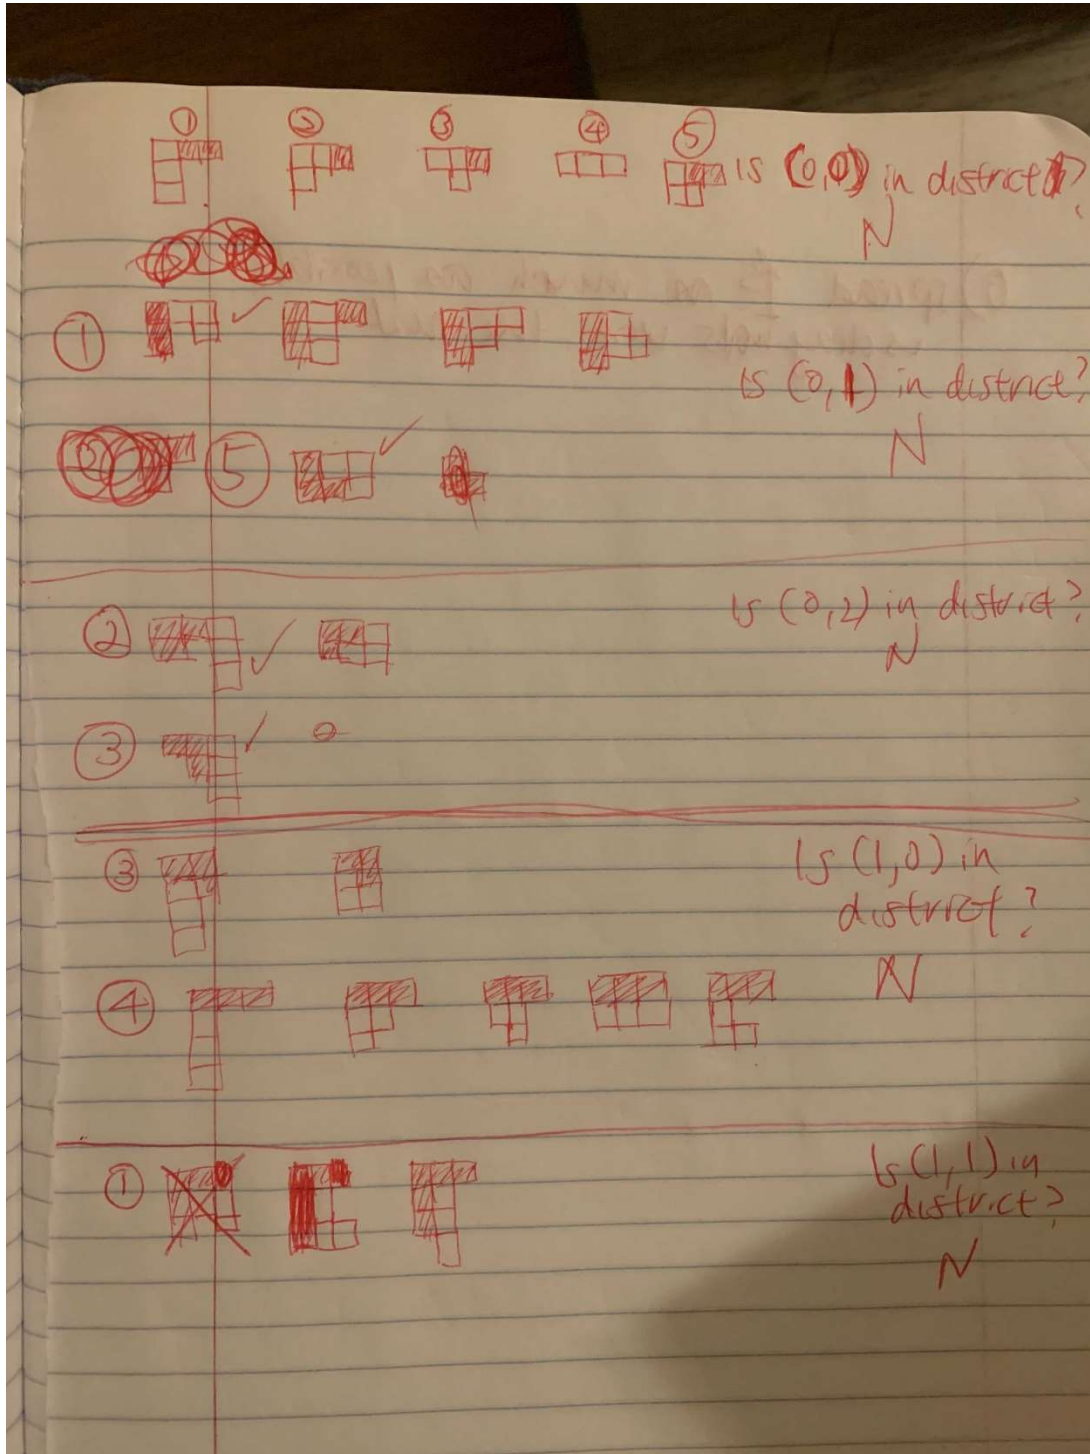 ① ② ③ ④ ⑤
is (0,0) in district?
N
①
is (0,1) in district?
N
⑤
② is (0,2) in district?
N
③
③ Is (1,0) in
district?
N
④
① Is (1,1) in
district?
N